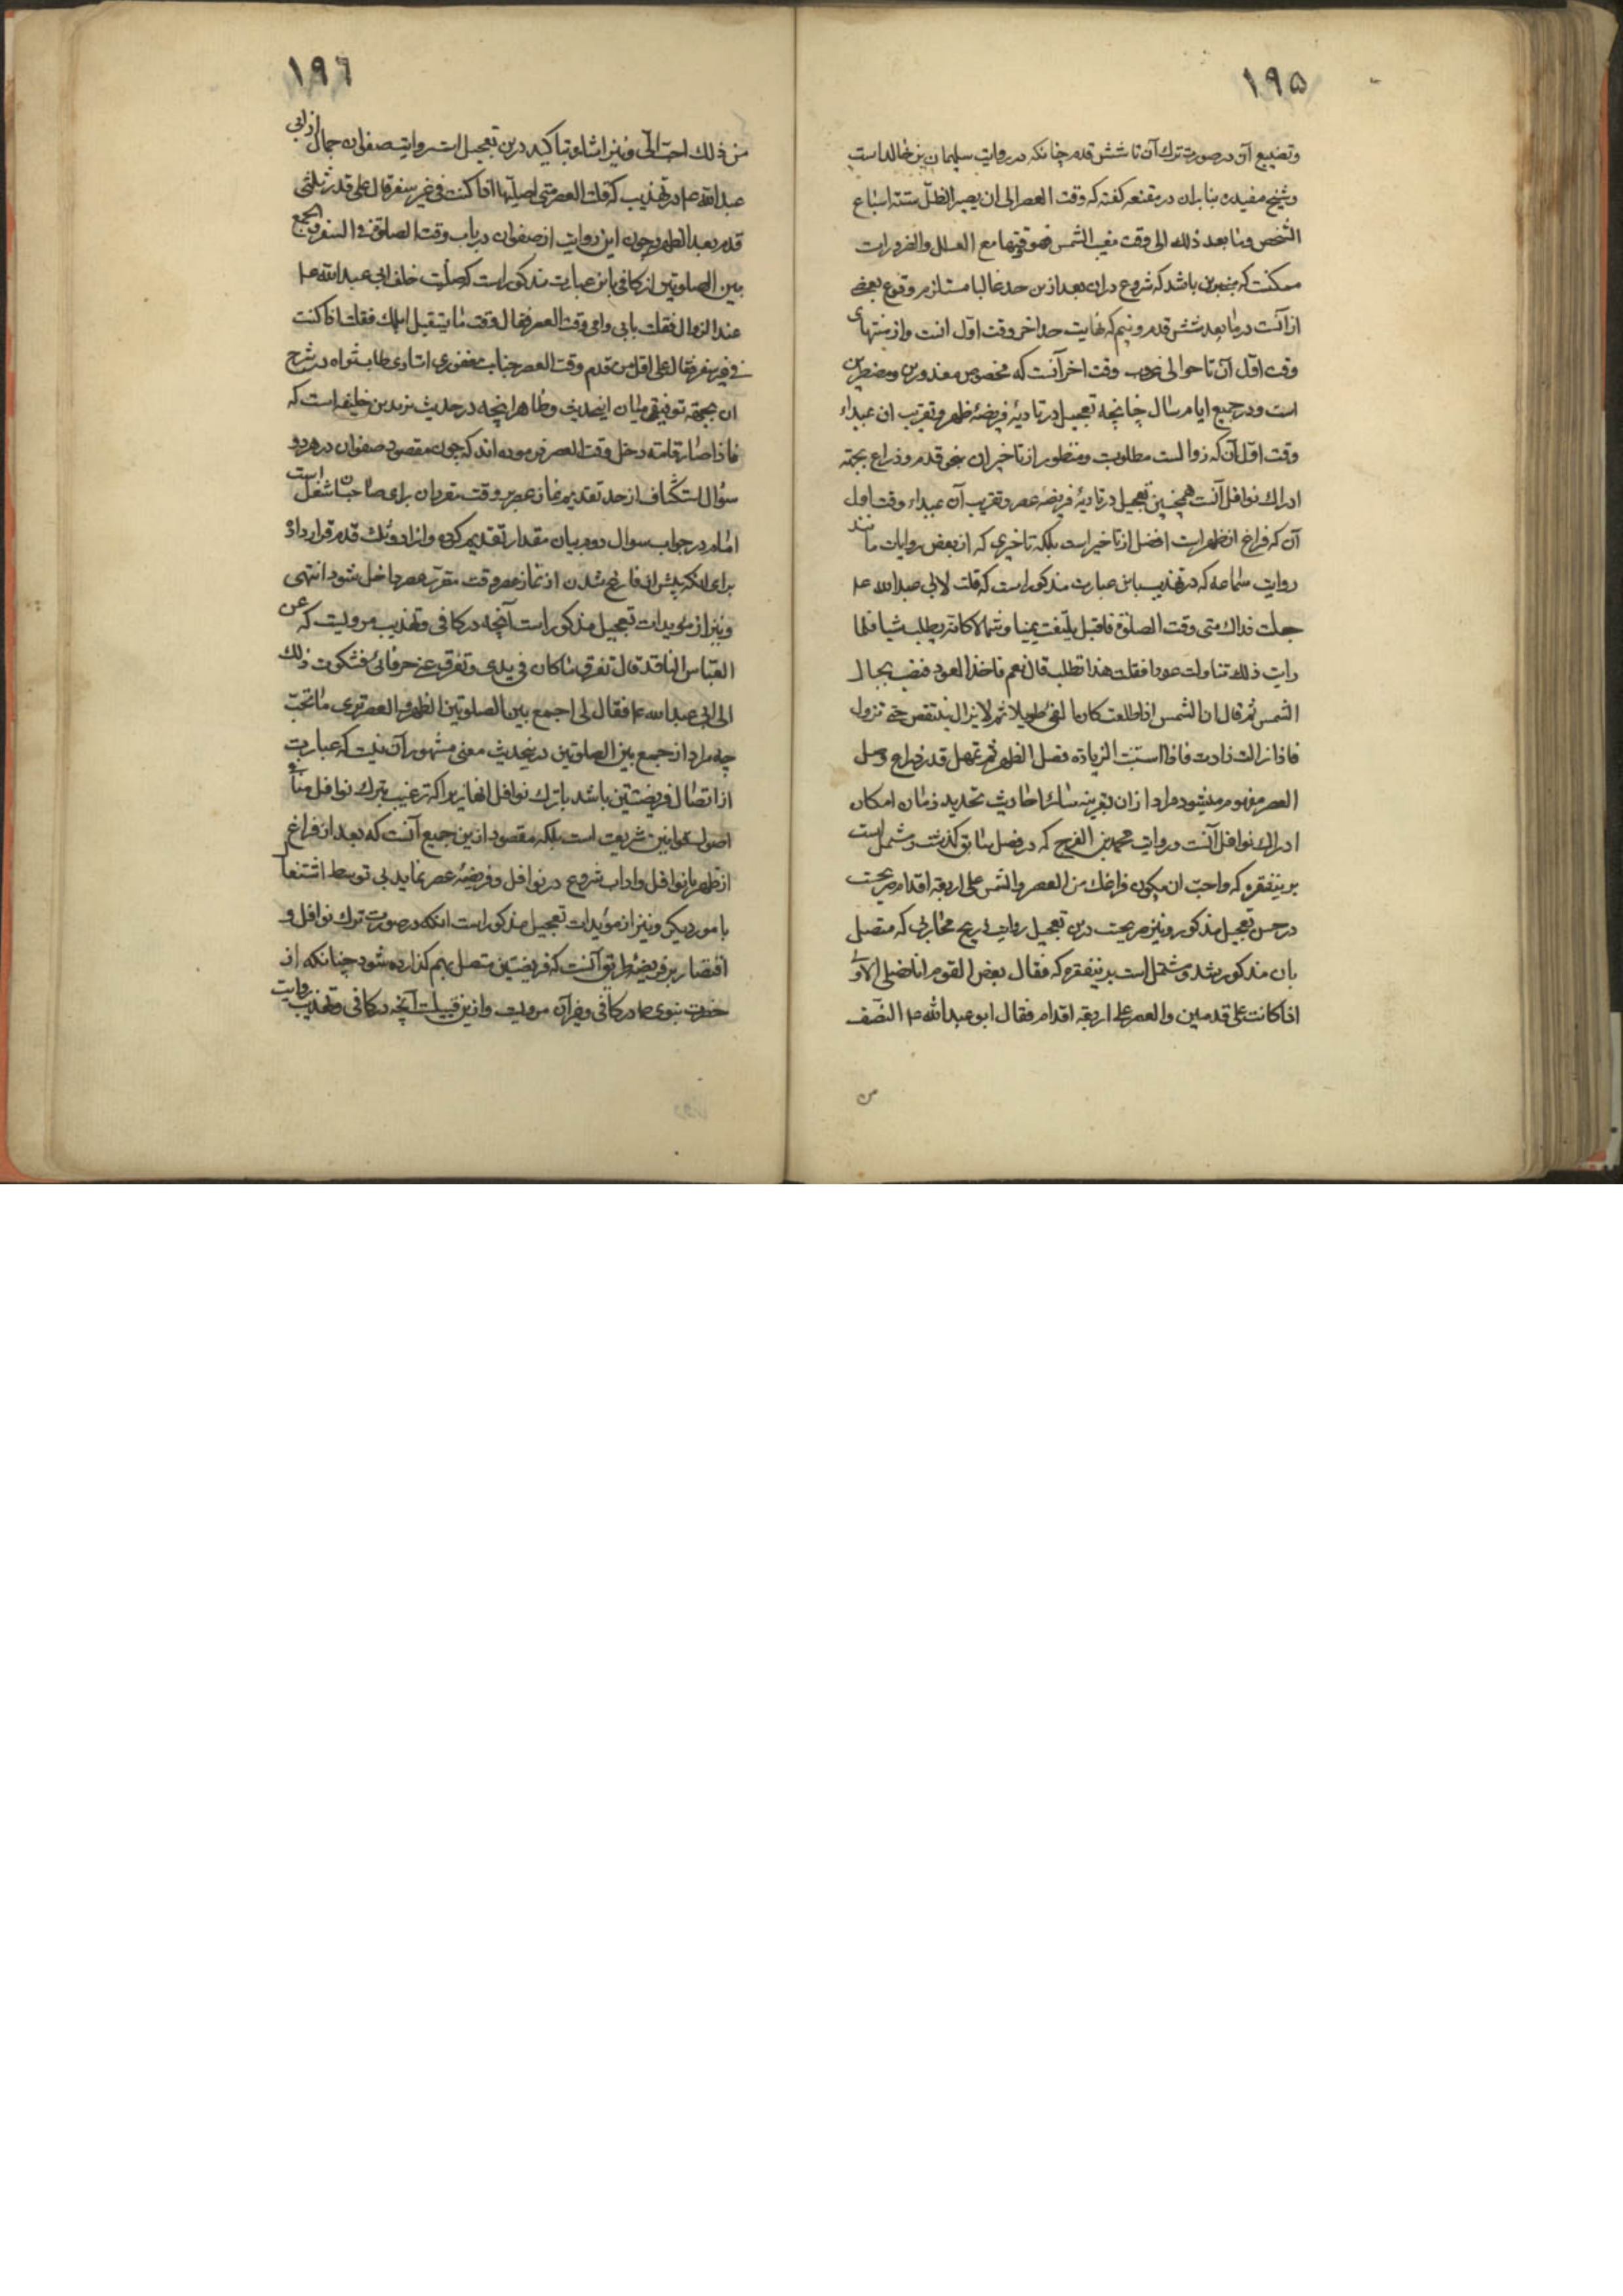 ١٩٥
وتضییع آن در صورت ترك آن تا شش قدم چنانکه در روایت سلیمان بن خالد است
و شیخ مفید ره بنابران در مقنعه کفته که وقت العصر الی ان یصیر الظل ستة اسباع
الشخص وما بعد ذلك الی وقت مغیب الشمس فهو وقتها مع العلل والضرورات
ممکنست که مبنی برین باشد که شروع دران بعد ازین حد غالبا مستلزم وقوع بعضی
از آنست در مابعد شش قدم ونیم که نهایت حد اخر وقت اول انست واز منتهای
وقت اول آن تا حوالی غروب وقت اخر آنست که مخصوص معذورین ومضطرین
است ودر جمیع ایام سال چنانچه تعجیل در تادیهٔ فریضهٔ ظهر وتقریب ان بمبداء
وقت اول آن که زوالست مطلوبست ومنظور از تاخیر ان بنحو قدم وذراع بجهة
ادراك نوافل آنست همچنین تعجیل در تادیهٔ فریضهٔ عصر وتقریب آن بمبداء وقت اول
آن که فراغ از ظهر است افضل از تاخیر است بلکه تاخیری که از بعض روایات مانند
روایت سماعه که در تهذیب باین عبارت مذکور است که قلت لابی عبد الله ع
جعلت فداك متی وقت الصلوة فاقبل یلتفت یمینا وشمالا کانه یطلب شیا فلما
رایت ذلك تناولت عودا فقلت هذا تطلب قال نعم فاخذ العود فنصب بحیال
الشمس ثم قال ان الشمس اذا طلعت کان الفئ طویلا ثم لا یزال ینتقص حتی تزول
فاذا زالت زادت فاذا استبنت الزیادة فصل الظهر ثم تمهل قدر ذراع وصل
العصر مفهوم میشود مراد ازان بقرینه سائر احادیث تحدید زمان امکان
ادراك نوافل آنست وروایت محمد بن الفرج که در فصل سابق کذشت ومشتمل است
برینفقره که واحب ان یکون فراغك من العصر والشمس علی اربعة اقدام صریحست
در حسن تعجیل مذکور ونیز صریحست درین تعجیل روایت ذریح محاربی که متصل
بان مذکور شد ومشتمل است برینفقره که فقال بعض القوم انا نصلی الاولی
اذا کانت علی قدمین والعصر علی اربعة اقدام فقال ابو عبد الله ع النصف
من
١٩٦
من ذلك احب الی ونیز اشاره بتاکید درین تعجیل است روایت صفوان جمال از ابی
عبد الله ع در تهذیب که قلت العصر متی اصلیها اذا کنت فی غیر سفر قال علی قدر ثلثی
قدم بعد الظهر وچون این روایت از صفوان در باب وقت الصلوة فی السفر والجمع
بین الصلوتین از کافی باین عبارت مذکور است که صلیت خلف ابی عبد الله ع
عند الزوال فقلت بابی وامی وقت العصر فقال وقت ما یستقبل ابلك فقلت اذا کنت
فی غیر سفر فقال علی اقل من قدم وقت العصر جناب مغفوری استادی طاب ثراه در شرح
ان بجهة توفیق میان اینحدیث وظاهر اینچه در حدیث یزید بن خلیفه است که
فاذا صار قامة دخل وقت العصر فرموده اند که چون مقصود صفوان در هر دو
سؤال استکشاف از حد تقدیم نماز عصر بر وقت مقرر ان برای صاحبان شغل است
امام در جواب سوال دوم بیان مقدار تقدیم کرده وانرا دو ثلث قدم قرار داده
برای انکه پیش از فارغ شدن از نماز عصر وقت مقرر عصر داخل شود انتهی
ونیز از مویدات تعجیل مذکور است آنچه در کافی وتهذیب مرویست که عن
العباس الناقد قال تفرق ما کان فی یدی وتفرق عنی حرفائی فشکوت ذلك
الی ابی عبد الله ع فقال لی اجمع بین الصلوتین الظهر والعصر تری ما تحب
چه مراد از جمع بین الصلوتین درینحدیث معنی مشهور آن نیست که عبارت
از اتصال فریضتین باشد با ترك نوافل انها زیرا که ترغیب بترك نوافل منافی
اصول وقوانین شریعت است بلکه مقصود ازین جمع آنست که بعد از فراغ
از ظهر با نوافل واداب شروع در نوافل وفریضهٔ عصر نماید بی توسط اشتغال
بامور دیکر ونیز از مؤیدات تعجیل مذکور است انکه در صورت ترك نوافل و
اقتصار بر فریضه طریق آنست که فریضتین متصل بهم کذارده شود چنانکه از
حضرت نبوی ص در کافی وغیر آن مرویست وازین قبیلست آنچه در کافی وتهذیب
روایت